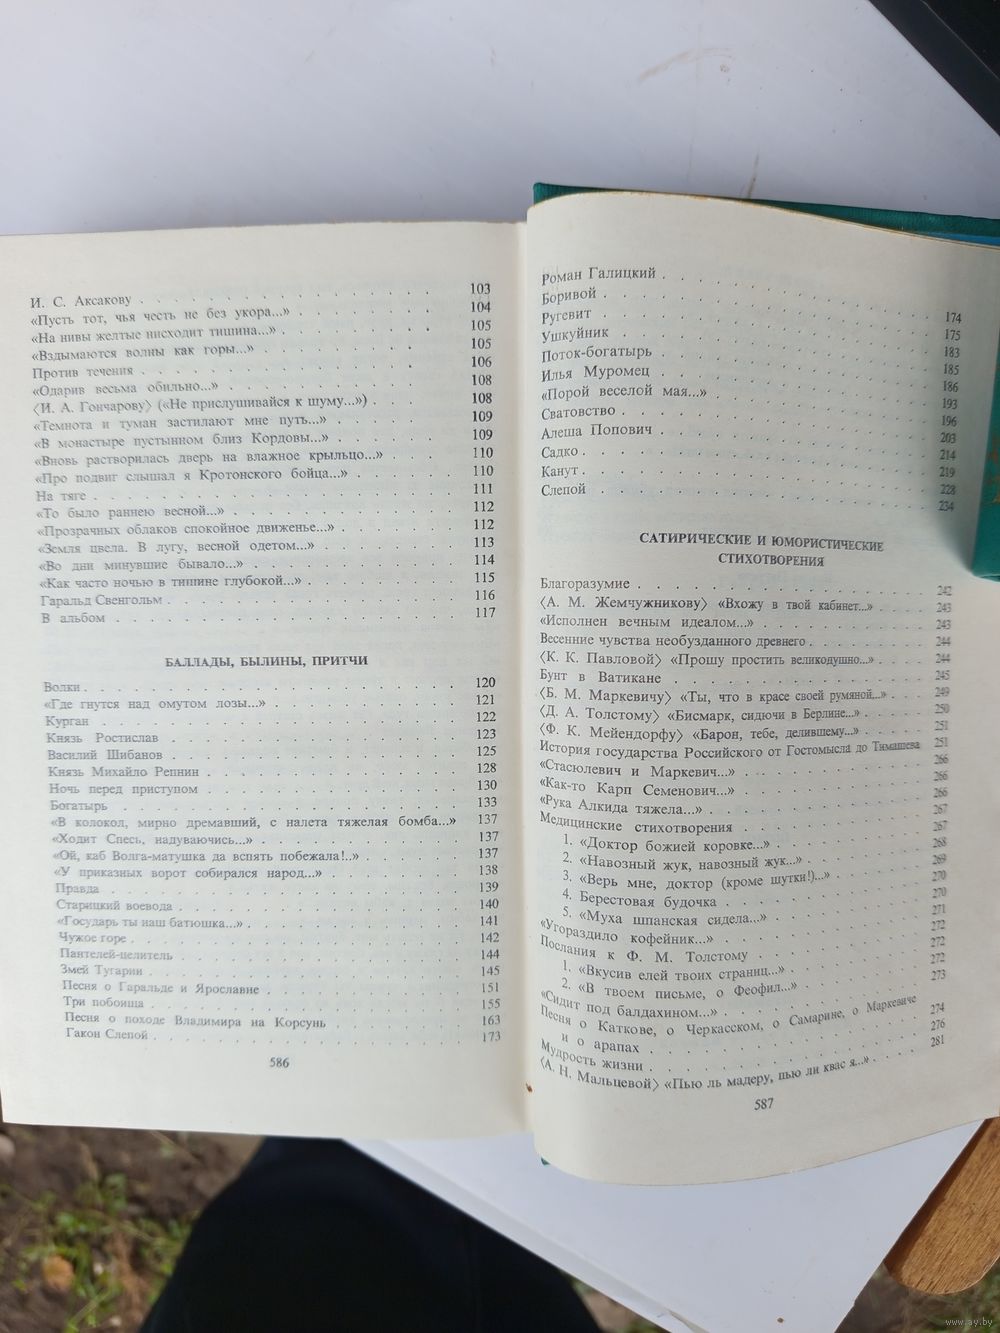 И. С. Аксакову . . . . . . . . . . . . . . 103
«Пусть тот, чья честь не без укора...» . . . . . . 104
«На нивы желтые нисходит тишина...» . . . . . . 105
«Вздымаются волны как горы...» . . . . . . . 105
Против течения . . . . . . . . . . . . . 106
«Одарив весьма обильно...» . . . . . . . . . 108
⟨И. А. Гончарову⟩ («Не прислушивайся к шуму...») . . . 108
«Темнота и туман застилают мне путь...» . . . . . 109
«В монастыре пустынном близ Кордовы...» . . . . . 109
«Вновь растворилась дверь на влажное крыльцо...» . . . 110
«Про подвиг слышал я Кротонского бойца...» . . . . 110
На тяге . . . . . . . . . . . . . . . 111
«То было раннею весной...» . . . . . . . . . 112
«Прозрачных облаков спокойное движенье...» . . . . 112
«Земля цвела. В лугу, весной одетом...» . . . . . 113
«Во дни минувшие бывало...» . . . . . . . . 114
«Как часто ночью в тишине глубокой...» . . . . . 115
Гаральд Свенгольм . . . . . . . . . . . . 116
В альбом . . . . . . . . . . . . . . 117
БАЛЛАДЫ, БЫЛИНЫ, ПРИТЧИ
Волки . . . . . . . . . . . . . . . 120
«Где гнутся над омутом лозы...» . . . . . . . . 121
Курган . . . . . . . . . . . . . . . 122
Князь Ростислав . . . . . . . . . . . . 123
Василий Шибанов . . . . . . . . . . . . 125
Князь Михайло Репнин . . . . . . . . . . 128
Ночь перед приступом . . . . . . . . . . 130
Богатырь . . . . . . . . . . . . . . 133
«В колокол, мирно дремавший, с налета тяжелая бомба...» 137
«Ходит Спесь, надуваючись...» . . . . . . . . 137
«Ой, каб Волга-матушка да вспять побежала!..» . . . . 137
«У приказных ворот собирался народ...» . . . . . 138
Правда . . . . . . . . . . . . . . . 139
Старицкий воевода . . . . . . . . . . . 140
«Государь ты наш батюшка...» . . . . . . . . 141
Чужое горе . . . . . . . . . . . . . . 142
Пантелей-целитель . . . . . . . . . . . 144
Змей Тугарин . . . . . . . . . . . . . 145
Песня о Гаральде и Ярославне . . . . . . . . 151
Три побоища . . . . . . . . . . . . . 155
Песня о походе Владимира на Корсунь . . . . . 163
Гакон Слепой . . . . . . . . . . . . . 173
586
Роман Галицкий . . . . . . . . . . . . 174
Боривой . . . . . . . . . . . . . . 175
Ругевит . . . . . . . . . . . . . . 183
Ушкуйник . . . . . . . . . . . . . . 185
Поток-богатырь . . . . . . . . . . . . 186
Илья Муромец . . . . . . . . . . . . . 193
«Порой веселой мая...» . . . . . . . . . . 196
Сватовство . . . . . . . . . . . . . . 203
Алеша Попович . . . . . . . . . . . . 214
Садко . . . . . . . . . . . . . . . 219
Канут . . . . . . . . . . . . . . . 228
Слепой . . . . . . . . . . . . . . . 234
САТИРИЧЕСКИЕ И ЮМОРИСТИЧЕСКИЕ
СТИХОТВОРЕНИЯ
Благоразумие . . . . . . . . . . . . . 242
⟨А. М. Жемчужникову⟩ «Вхожу в твой кабинет...» . . . 243
«Исполнен вечным идеалом...» . . . . . . . . 243
Весенние чувства необузданного древнего . . . . . . 244
⟨К. К. Павловой⟩ «Прошу простить великодушно...» . . . 244
Бунт в Ватикане . . . . . . . . . . . . 245
⟨Б. М. Маркевичу⟩ «Ты, что в красе своей румяной...» . . . 249
⟨Д. А. Толстому⟩ «Бисмарк, сидючи в Берлине...» . . . . 250
⟨Ф. К. Мейендорфу⟩ «Барон, тебе, делившему...» . . . . 251
История государства Российского от Гостомысла до Тимашева 251
«Стасюлевич и Маркевич...» . . . . . . . . . 266
«Как-то Карп Семенович...» . . . . . . . . . 266
«Рука Алкида тяжела...» . . . . . . . . . . 266
Медицинские стихотворения . . . . . . . . . 267
1. «Доктор божией коровке...» . . . . . . . . 267
2. «Навозный жук, навозный жук...» . . . . . . 268
3. «Верь мне, доктор (кроме шутки!)...» . . . . . 269
4. Берестовая будочка . . . . . . . . . . 270
5. «Муха шпанская сидела...» . . . . . . . . 270
«Угораздило кофейник...» . . . . . . . . . . 271
Послания к Ф. М. Толстому . . . . . . . . . 272
1. «Вкусив елей твоих страниц...» . . . . . . . 272
2. «В твоем письме, о Феофил...» . . . . . . . 272
«Сидит под балдахином...» . . . . . . . . . 273
Песня о Каткове, о Черкасском, о Самарине, о Маркевиче
и о арапах . . . . . . . . . . . . . 274
Мудрость жизни . . . . . . . . . . . . 276
⟨А. Н. Мальцевой⟩ «Пью ль мадеру, пью ли квас я...» . . . . 281
587
www.ay.by